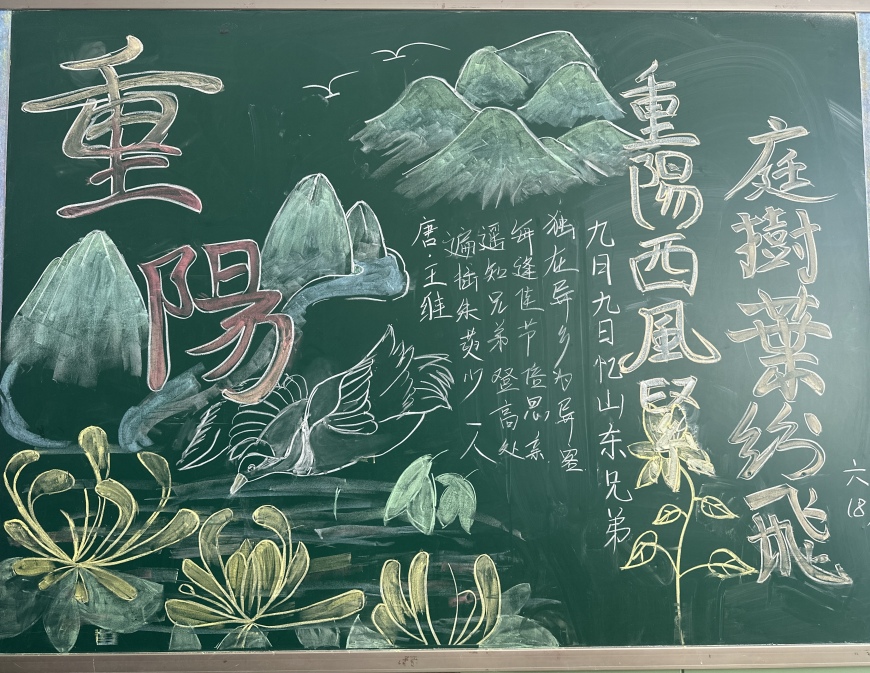 重陽
重陽西風緊
庭樹葉紛飛
九月九日忆山东兄弟
独在异乡为异客
每逢佳节倍思亲
遥知兄弟登高处
遍插朱萸少一人
唐·王维
六18